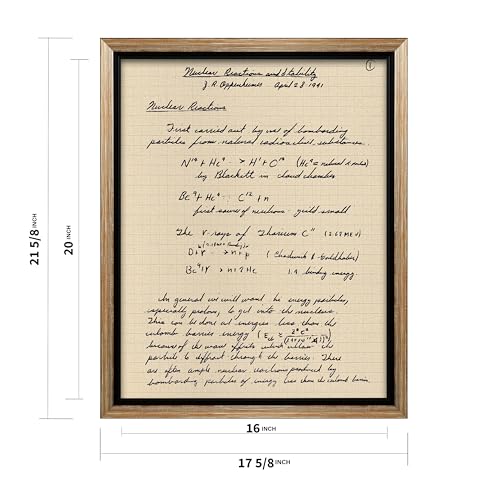 Nuclear Reactions and Stability
①
J. R. Oppenheimer - April 28 1941
Nuclear Reactions
First carried out by use of bombarding
particles from natural radioactive substances.
N¹⁴ + He⁴ → H¹ + C¹⁴ (He⁴ = natural α rules)
by Blackett in cloud chamber
Be⁹ + He⁴ C¹² + n
first source of neutrons - yield small
The γ-rays of Thorium C" (2.62 MEV)
D + γ → n + p (Chadwick & Goldhaber)
Be⁹ + γ → n + 2 He 1.4 binding energy.
In general we will want hi energy particles,
especially protons, to get into the nucleus.
This can be done at energies less than the
coulomb barrier energy
because of the wave effects which allow the
particle to diffract through the barrier. There
are often ample nuclear reactions produced by
bombarding particles of energy less than the coulomb barrier.
21 5/8 INCH
20 INCH
16 INCH
17 5/8 INCH